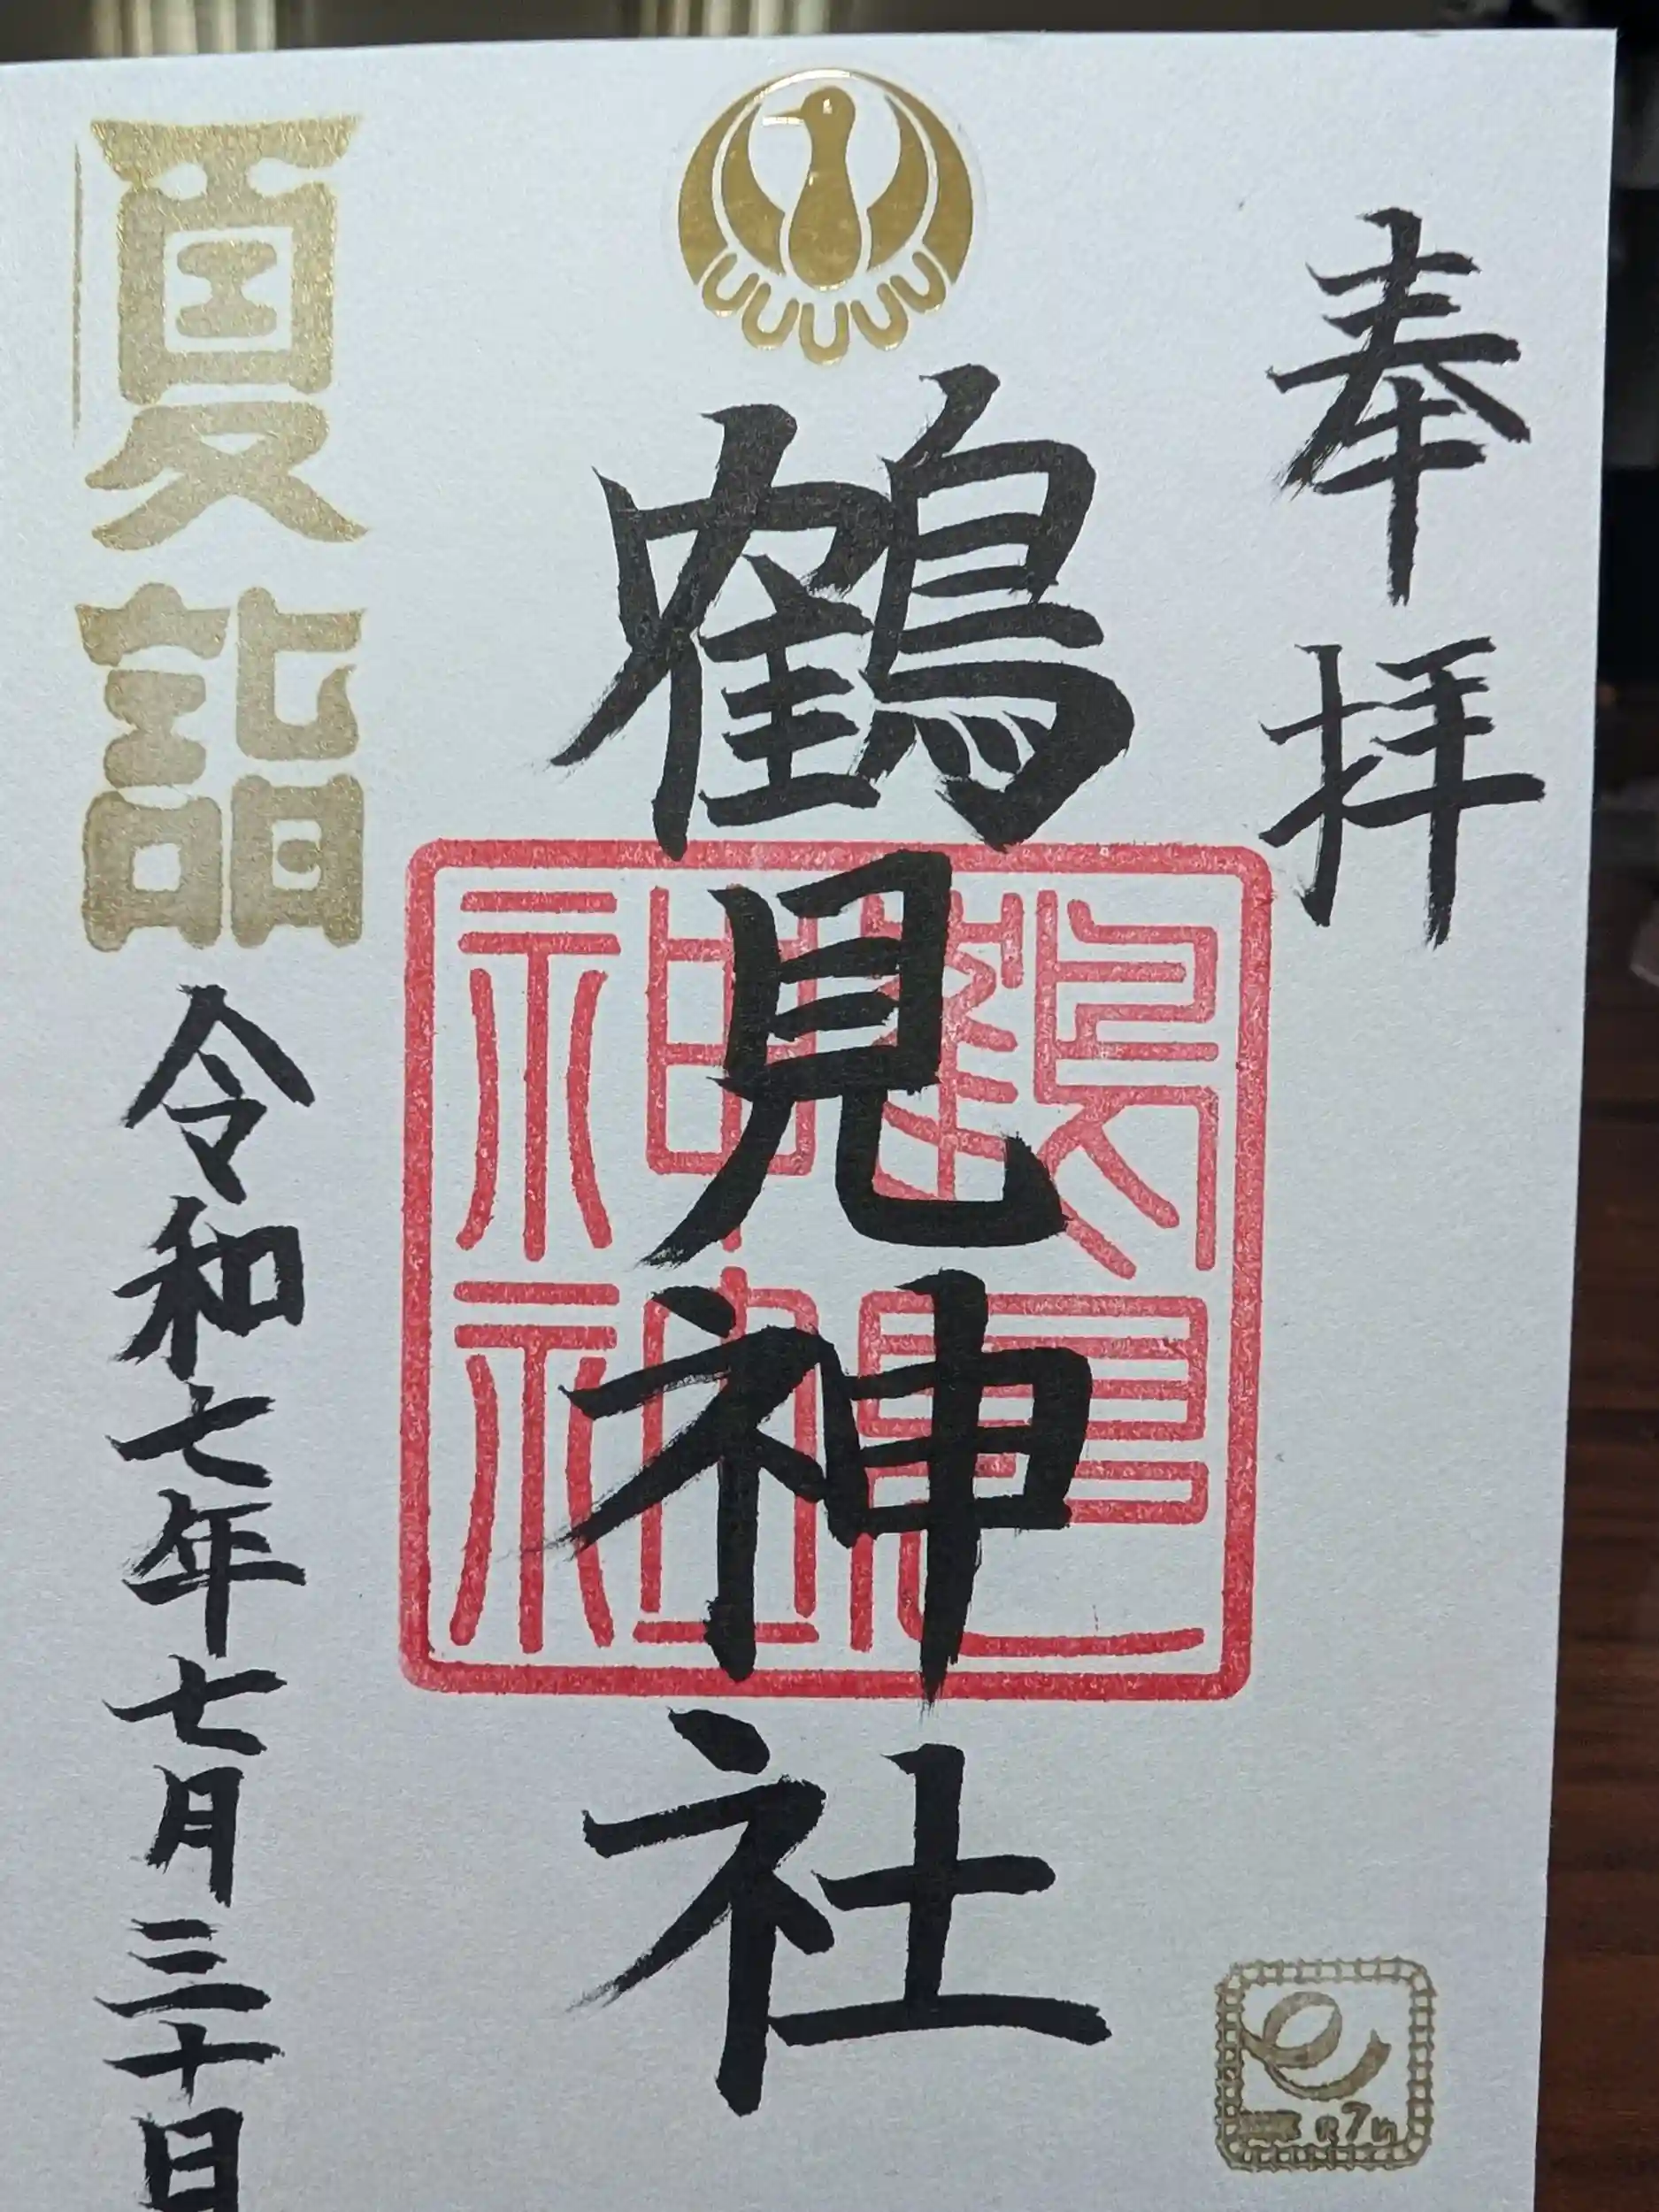 奉拝
鶴見神社
鶴見
神社
夏詣
令和七年七月三十日
R7